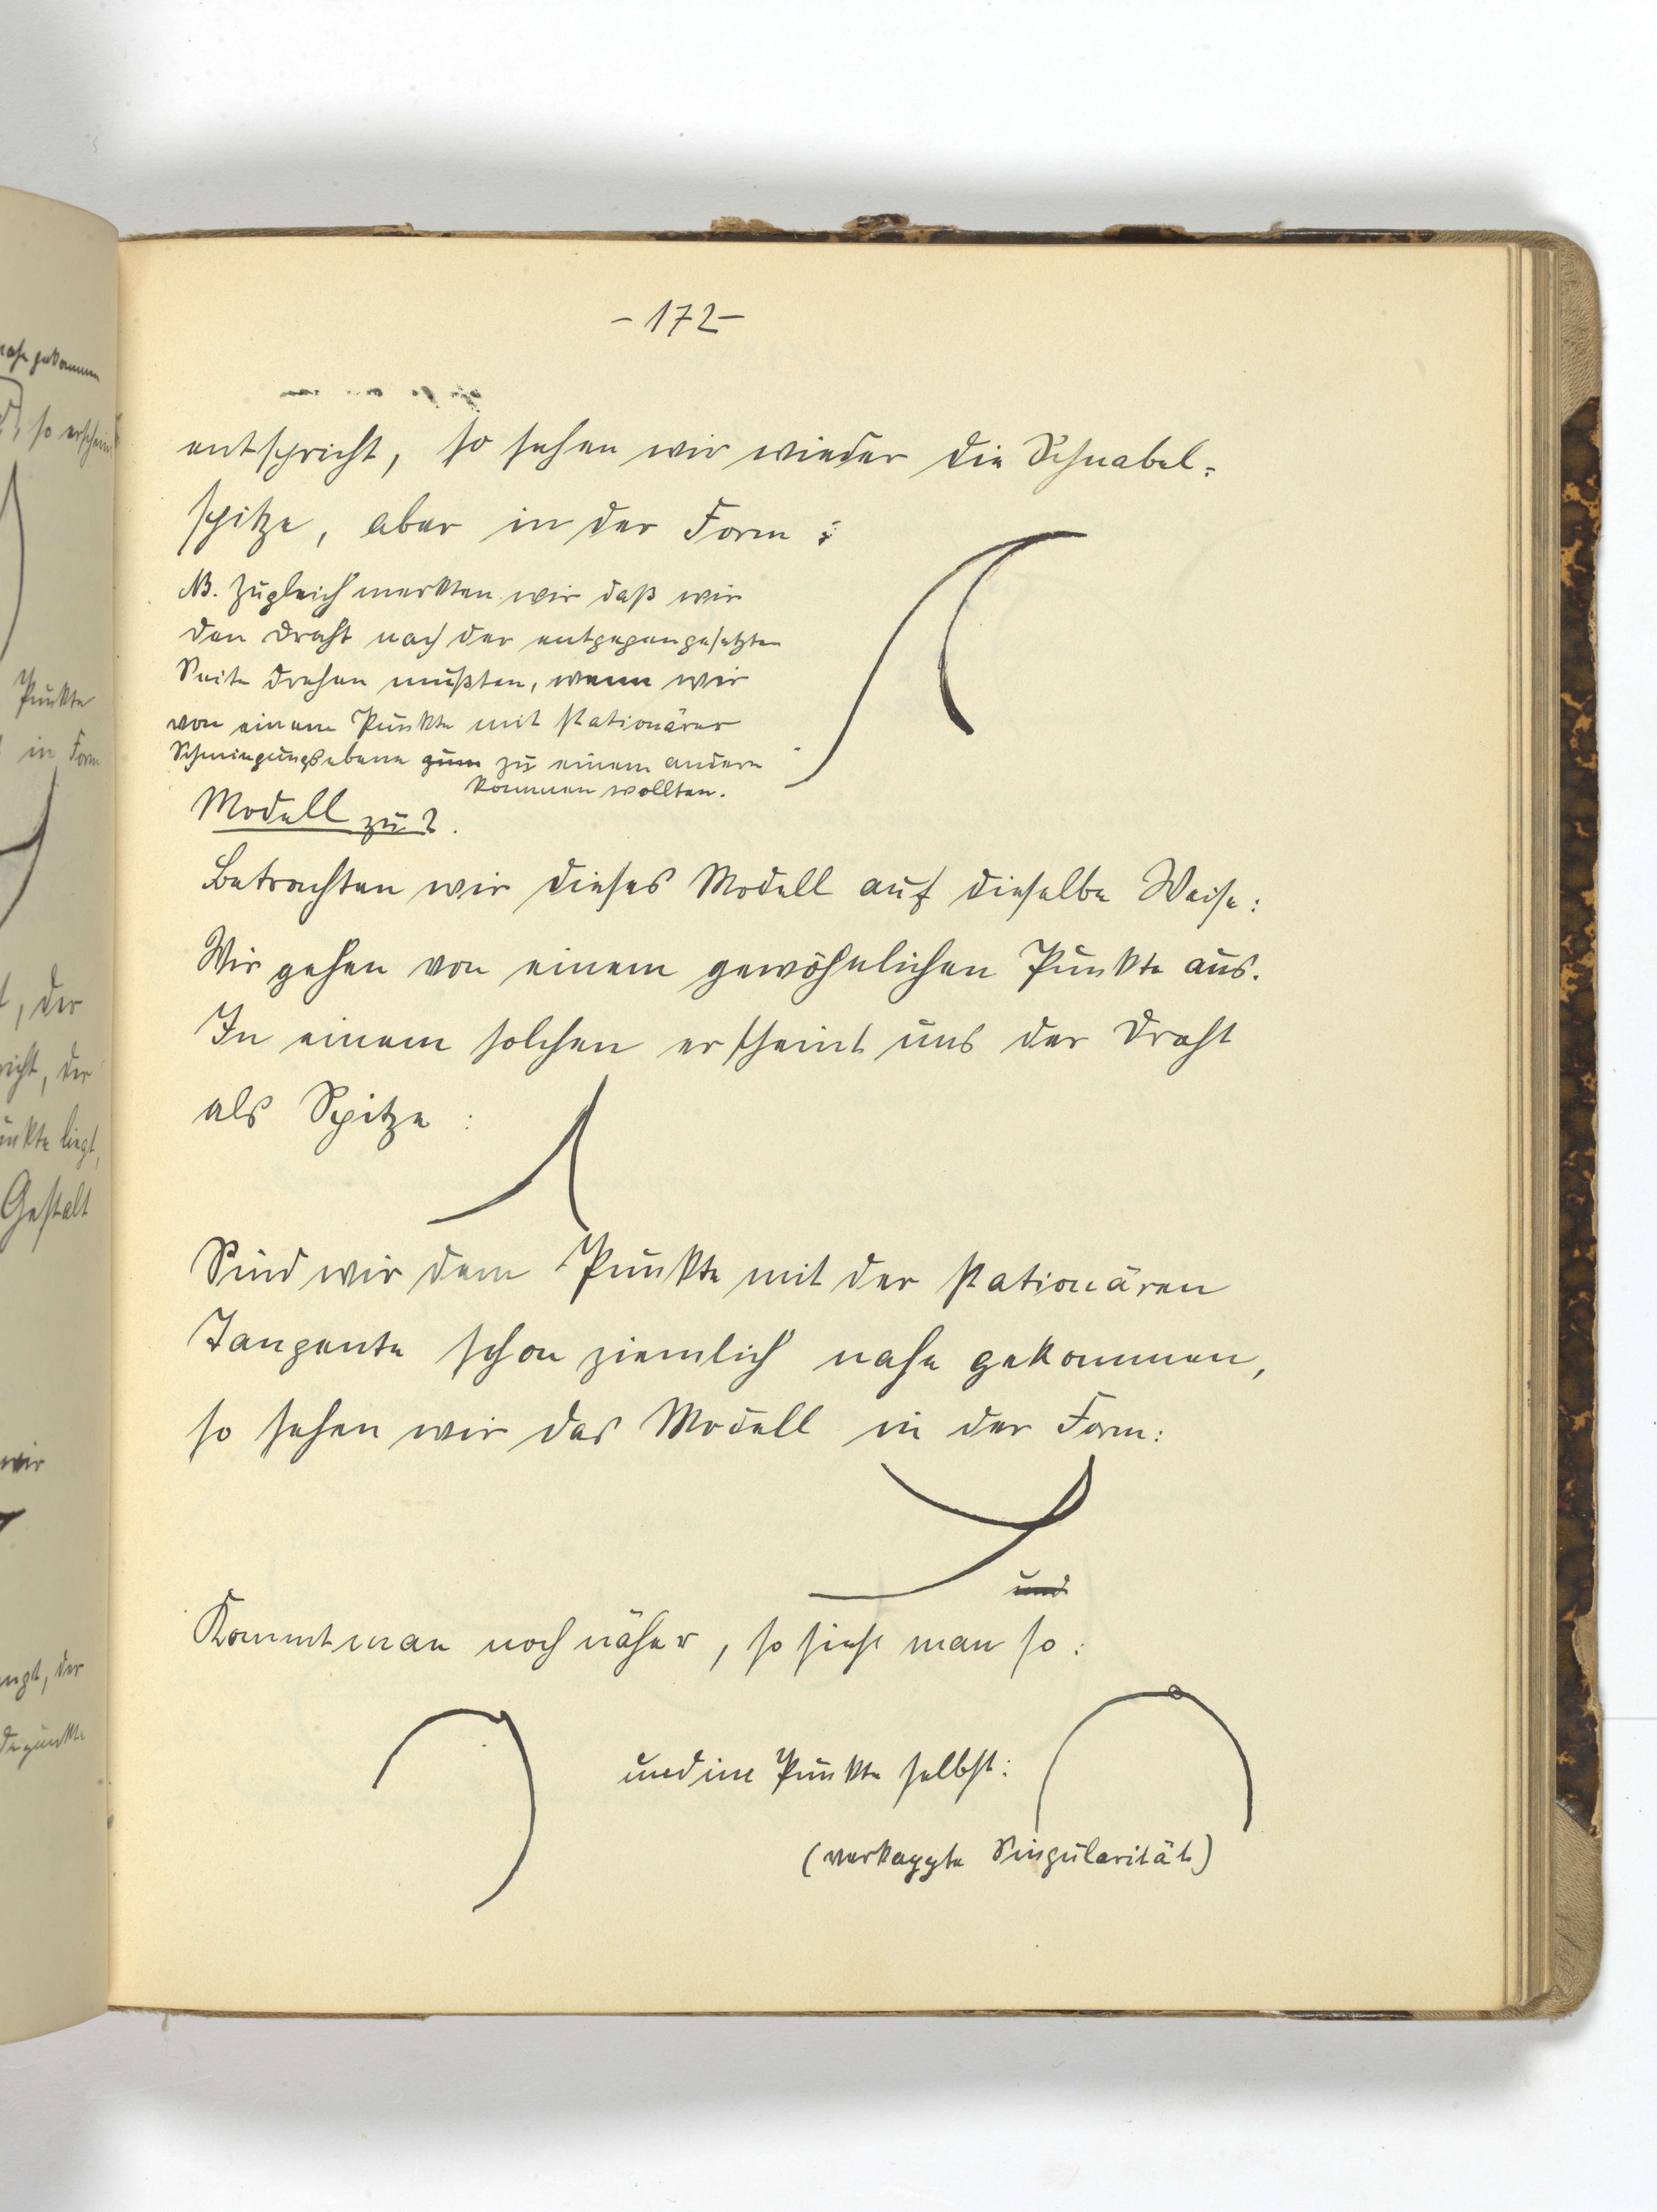 nahe gekommen
so erschein
Punkte
in Form
, der
, der
unkte liegt,
Gestalt
wir
, der
-172-
entspricht, so sehen wir wieder die Schnabel-
spitze, aber in der Form :
NB. Zugleich merkten wir daß wir
den Draht nach der entgegengesetzten
Seite drehen mußten, wenn wir
von einem Punkte mit stationärer
Schmiegungsebene zum zu einem andern
kommen wollten.
Modell zu 2.
Betrachten wir dieses Modell auf dieselbe Weise:
Wir gehen von einem gewöhnlichen Punkte aus.
In einem solchen erscheint uns der Draht
als Spitze :
Sind wir dem Punkte mit der stationären
Tangente schon ziemlich nahe gekommen,
so sehen wir das Modell in der Form:
und
Kommt man noch näher, so sieht man so :
und im Punkte selbst:
(verkappte Singularität)